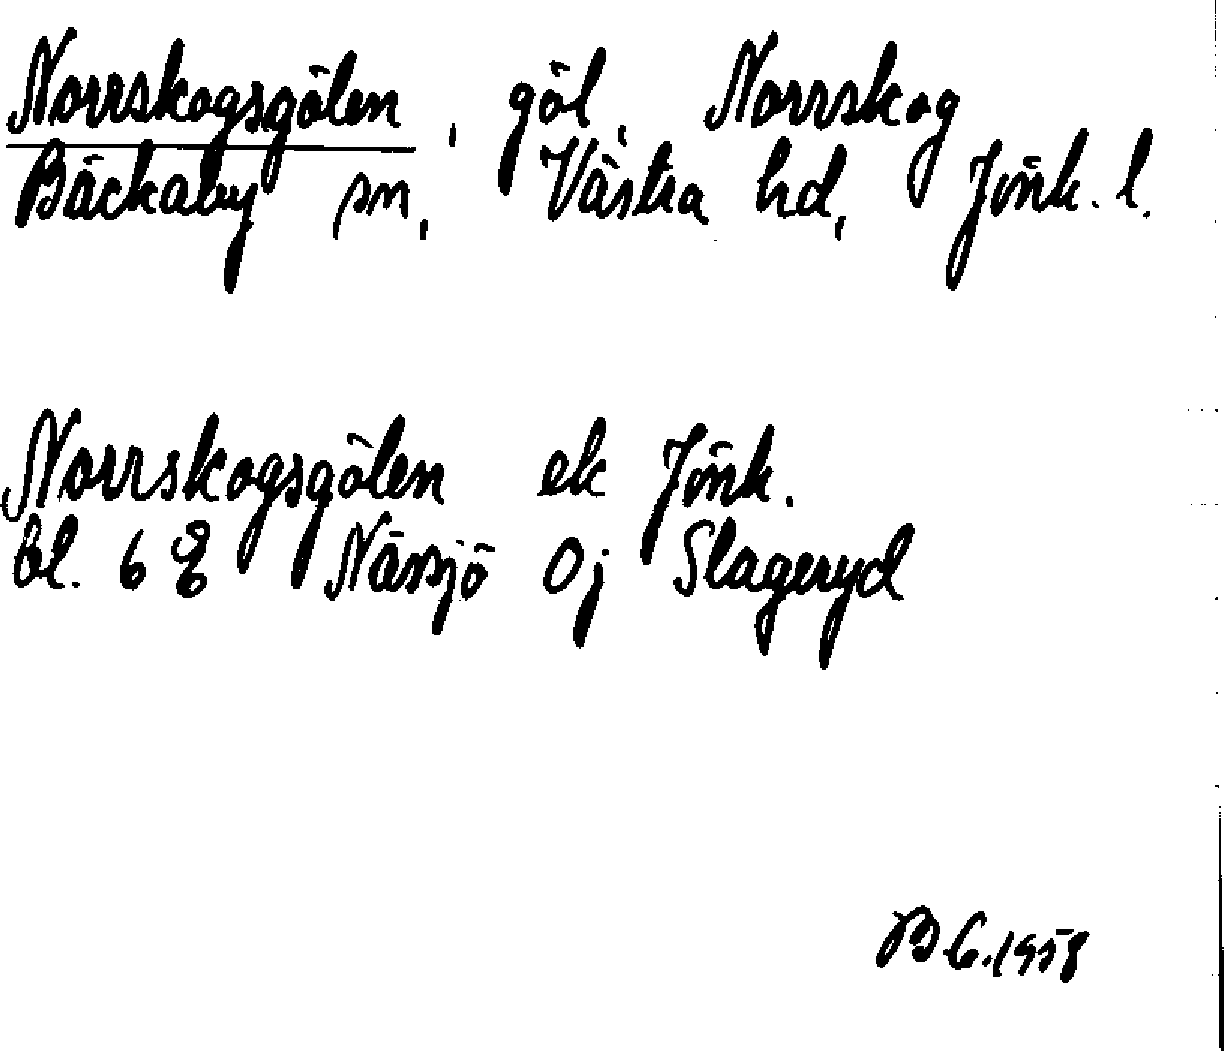 Norrskogsgölen, göl, Norrskog
Bäckaby sn, Västra hd, Jönk. l.
Norrskogsgölen ek Jönk.
bl. 6 E Nässjö Oj Slageryd
BG. 1958